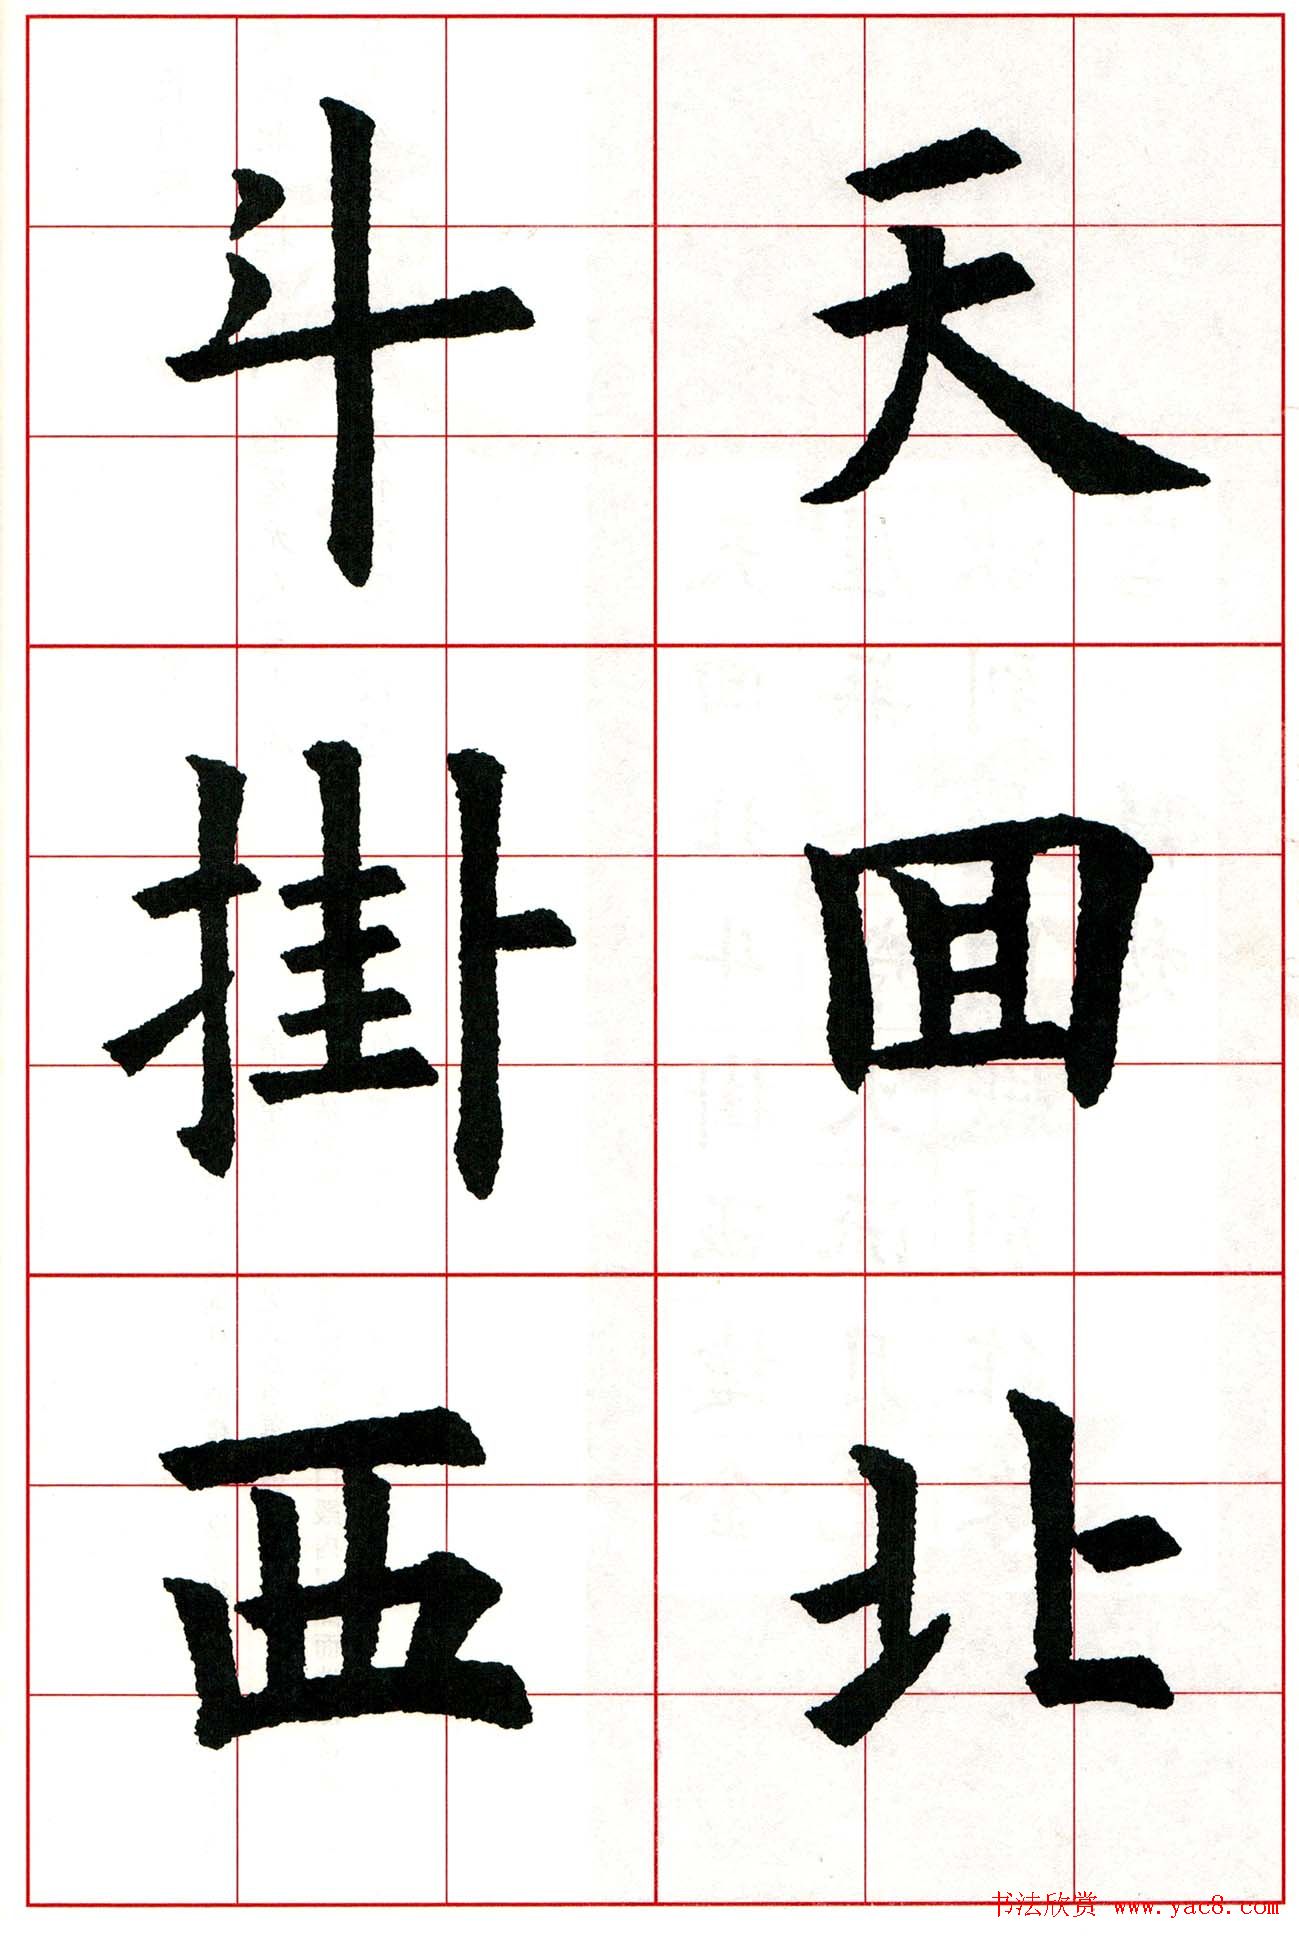 天囬北
斗掛西
书法欣赏 www.yac8.com